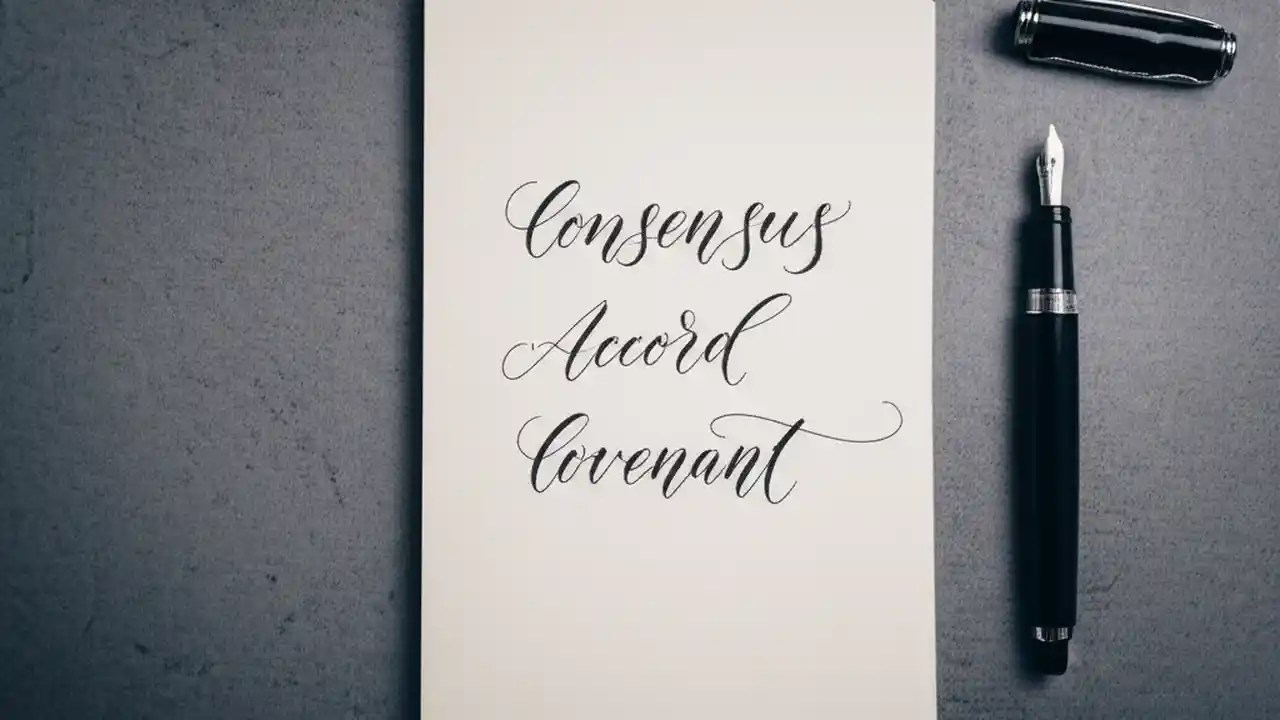 Consensus
Accord
Covenant